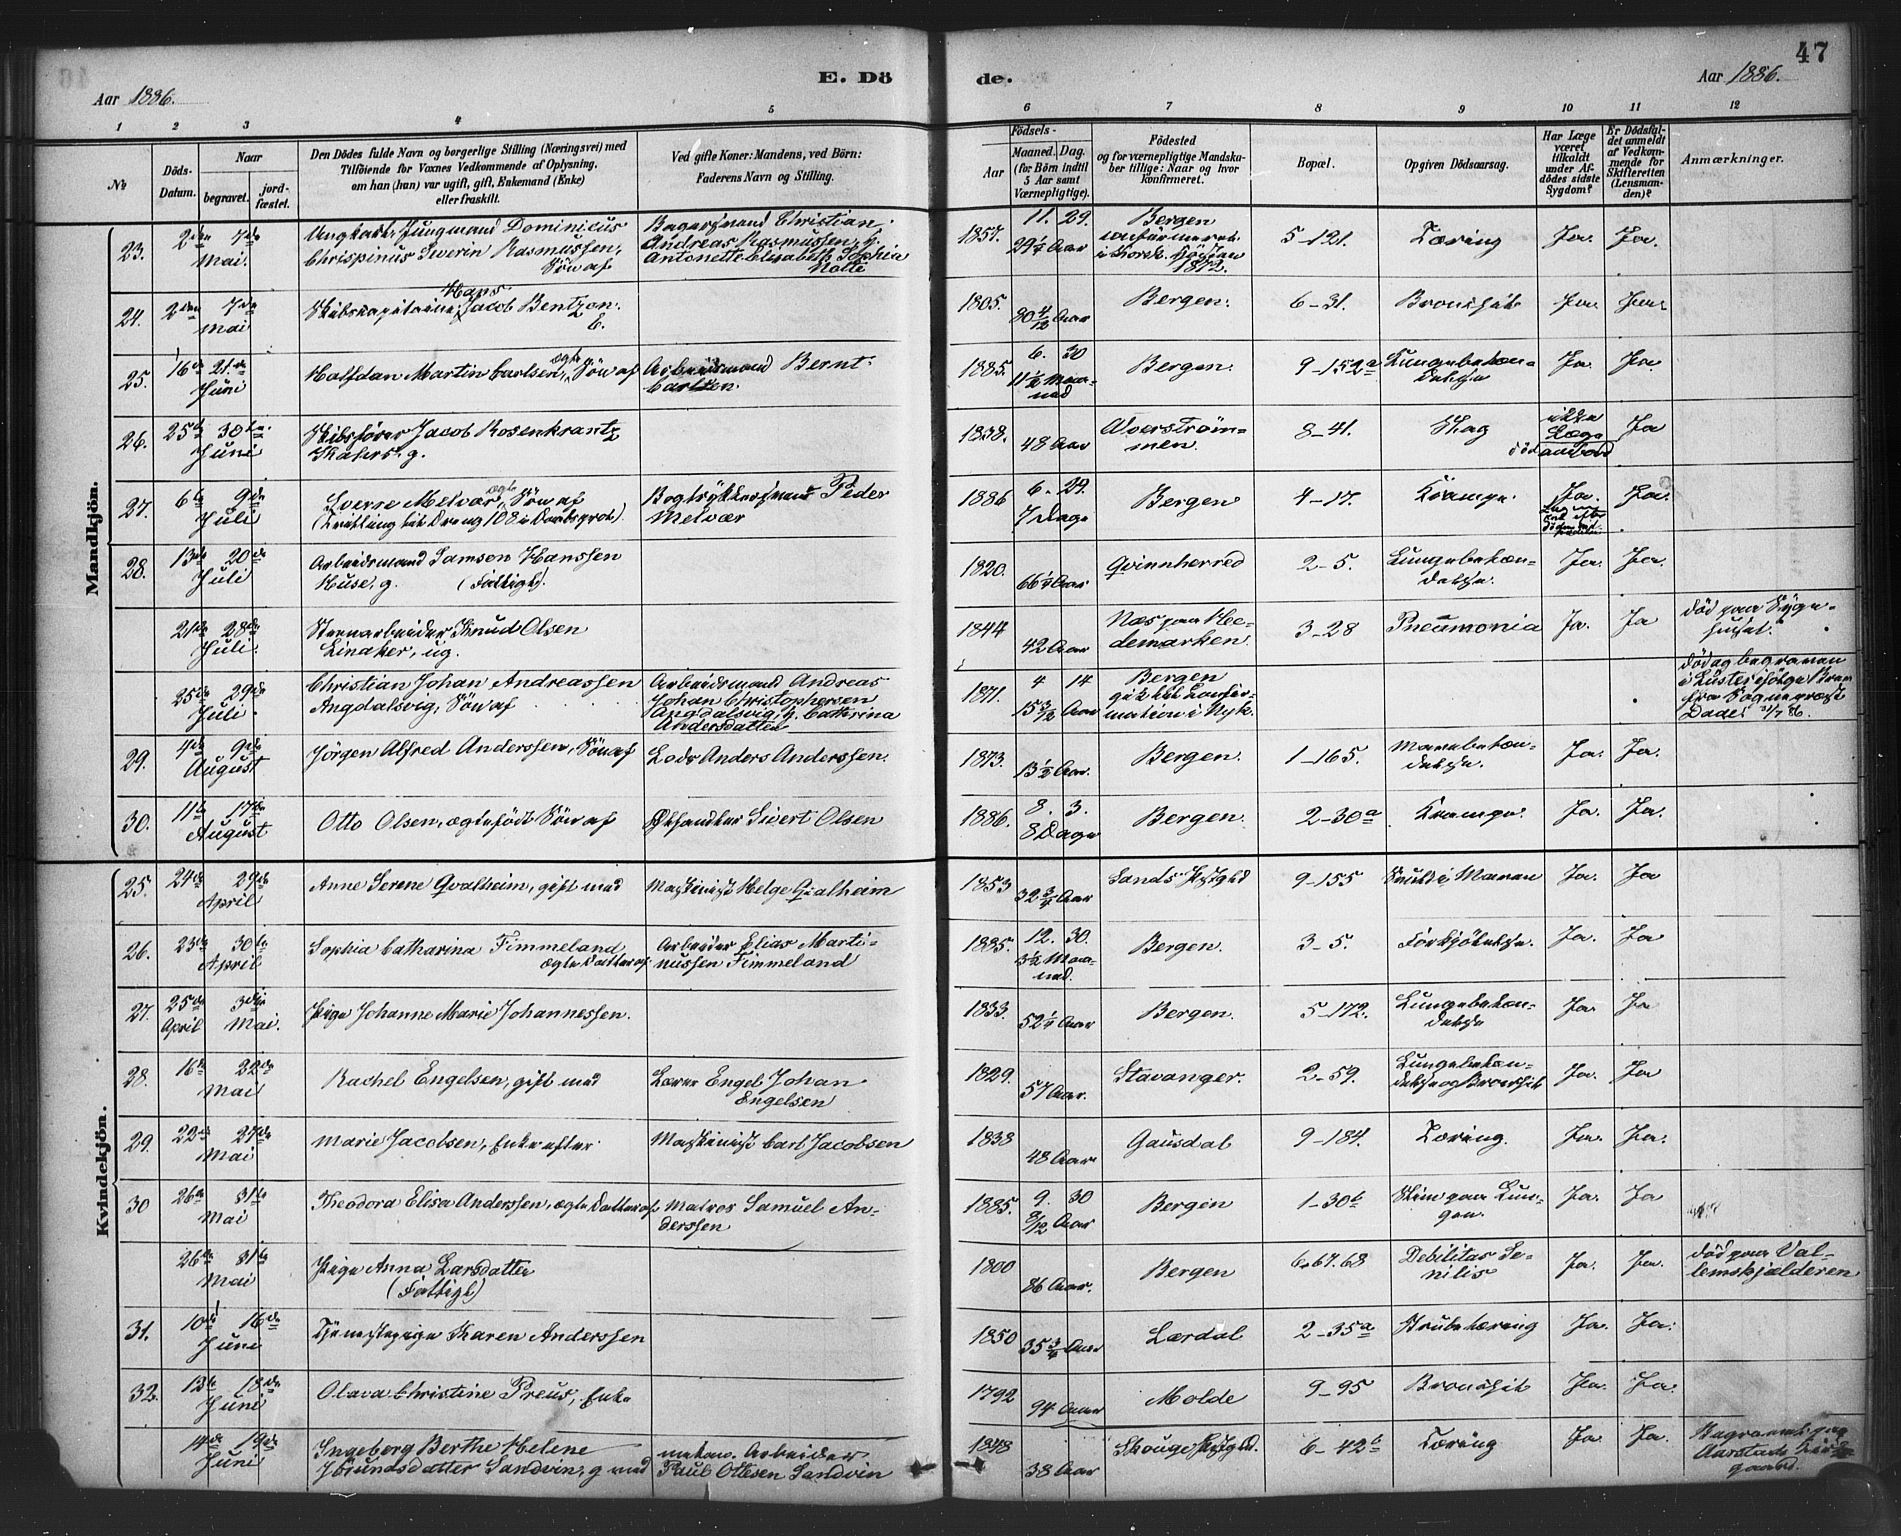 47
E. Dö de.
Aar 1886. Aar 1886.
1 2 3 4 5 6 7 8 9 10 11 12
№
Döds-Datum.
Naar
begravet. jordfæstet.
Den Dödes fulde Navn og borgerlige Stilling (Næringsvei) med
Tilföiende for Voxnes Vedkommende af Oplysning,
om han (han) var ugift, gift, Enkemand (Enke)
eller fraskilt.
Ved gifte Koner: Mandens, ved Börn:
Faderens Navn og Stilling.
Födsels-
Aar
Maaned. Dag.
(for Börn indtil
5 Aar samt
Værnepligtige).
Födested
og for værnepligtige Mandskaber tillige: Naar og hvor
konfirmeret.
Bopæl.
Opgiven Dödsaarsag.
Har Læge
været
tilkaldt
under Afdödes sidste
Sygdom?
Er Dödsfaldet anmeldt
af Vedkommende for
Skifteretten
(Lensmanden)?
Anmærkninger.
Mandkjön.
23. 2den Mai 7de Ungkarl, Jungmand Dominicus Bagersvend Christian 1857. 11. 29. Bergen 5-121. Tæring Ja. Ja.
Chrispinus Sverin Rasmussen, Andreas Rasmussen, g.
Sön af Antonette Elisabeth Sophia Nolte 1872.
24. 2den 7de Mai Skibskapitaine, Hans Jacob Bentzon. 1805. 80 4/12 Aar Bergen. 6-31. Bronchit Ja. Ja.
E.
25. 16de 21de Juni Halfdan Martin Carlsen, ægte Sön af Arbeidsmand Bernt Carlsen. 1885. 6. 30 11½ Maaned Bergen. 9-152a Lungebetændelse Ja. Ja
26. 25de 30te Juni Skibsförer Jacob Rosenkrantz 1838. 48 Aar Alverströmmen. 8-41. Slag ikke Læge död ombord Ja
27. 6te 9de Juli Sverre Melvær, ægte Sön af Bogtrykkersvend Peder Melvær 1886 6. 29. 7 Dage Bergen 4-17. Krampe. Ja. Ja.
28. 13de 20de Juli Arbeidsmand Samson Hanssen 1820. 66½ Aar Qvinnherred 2-5. Lungebetændelse. Ja. Ja.
Huse, g. (Fattigl).
21de 28de Juli Stenarbeider Knud Olsen 1844 42 Aar Næs paa Hedemarken. 3-28 Pneumonia Ja. Ja död paa Sygehuset.
Linaker, ug.
25de 29de Juli. Christian Johan Andreassen Arbeidsmand Andreas 1871. 4 14 Bergen död og begraven
Angdalsvig, Sön af Johan Christophersen 15 3/12 Aar
Angdalsvig, g. Cathrina
Andersdatter
29. 4de 9de August Jörgen Alfred Anderssen, Sön af Lods Anders Anderssen. 1873. 13½ Aar. Bergen. 1-165. Mavebetændelse. Ja. Ja.
30. 11te 17de August Otto Olsen, ægtefödt Sön af Ölhandler Sivert Olsen 1886. 8. 3. 8 Dage Bergen. 2-30a Krampe. Ja. Ja.
Kvindekjön.
25. 24de 29de April Anne Serene Qvalheim, gift med Maskinist Helge Qvalheim 1853 32¾ Aar Sands Prstgld 9-155 Saar i Maven Ja. Ja
26. 23de 30te April Sophia Catharina Fimmeland Arbeider Elias Martinussen Fimmeland 1885. 12. 30. 3½ Maaned. Bergen. 3-5. Forkjölelse. Ja. Ja
ægte Datter af
27. 25de April 3die Mai. Pige Johanne Marie Johannessen. 1833. 52½ Aar Bergen. 5-172. Lungebetændelse Ja. Ja
28. 16de 22de Mai Rachel Engelsen, gift med Lærer Engel Johan Engelsen 1829. 57 Aar. Stavanger. 2-59. Lungebetændelse og Bronchit Ja. Ja
29. 22de 27de Mai Marie Jacobsen, Enke efter Maskinist Carl Jacobsen 1838 48 Aar Gausdal 9-184. Tæring. Ja. Ja.
30 26de 31te Mai Theodora Elisa Anderssen, ægte Datter af Matros Samuel Anderssen 1885. 9. 30 8/12 Aar Bergen 1-30b Slim paa Lungen. Ja. Ja
26de 31te Mai Pige Anna Larsdatter 1800 86 Aar. Bergen 6-67.68 Debilitas Senilis Ja. Ja. död paa Vallemskjælderen
(Fattigl)
31. 10de 16de Juni Tjenestepige Karen Anderssen 1850 35¾ Aar Lærdal 2-35a Strubetæring Ja. Ja.
32. 13de 18de Juni Olava Christine Preus, Enke 1792 94 Aar Molde 9-95 Bronchit Ja. Ja.
14de 19de Juni Ingeborg Berthe Helene Arbeider 1848 38 Aar Skouge Prstgld. 6-42b Tæring Ja. Ja. Begravet paa
Jörundsdatter Sandvin, g med Paul Ottesen Sandvin Aarstads Kirkegaard.